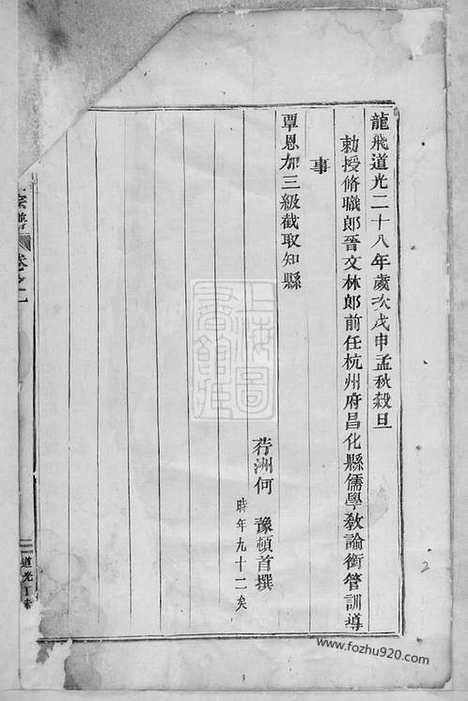 龍飛道光二十八年歲次戊申孟秋穀旦
勅授脩職郎晉文林郎前任杭州府昌化縣儒學教諭銜管訓導
事
覃恩加三級截取知縣
荇洲何 豫頓首撰
時年九十二矣
宗譜
卷之一
道光丁未
2
上海圖書館藏
www.fozhu920.com